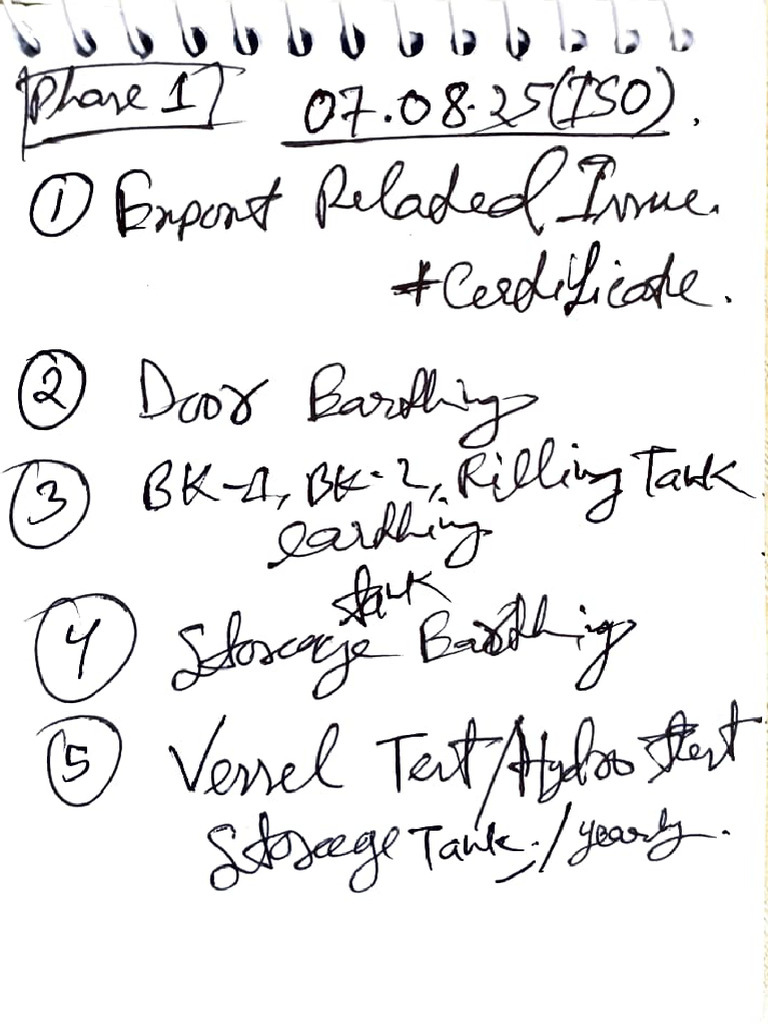 Phase 1 07.08.25(ISO).
① Export Related Issue.
+Certificate.
② Door Earthing
③ BK-1, BK-2, Filling Tank
earthing
tank
④ Storage Earthing
⑤ Vessel Test/Hydro test
Storage Tank./yearly.